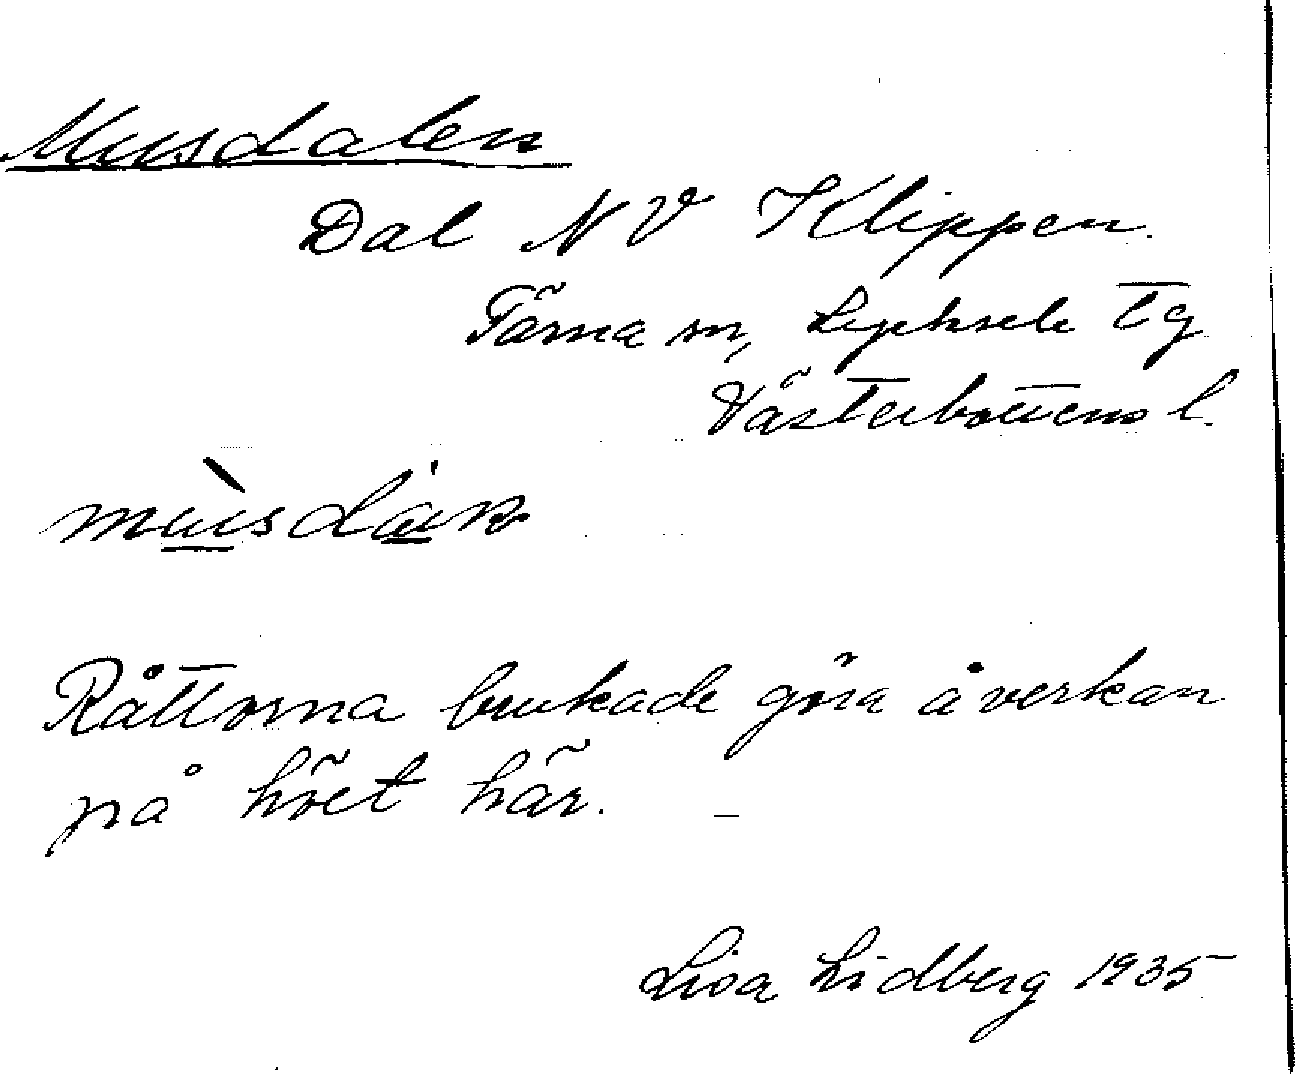 Musdalen
Dal NV Klippen.
Tärna sn, Lycksele tg
Västerbottens l.
Råttorna brukade göra åverkan
på höet här. –
Lisa Lidberg 1935